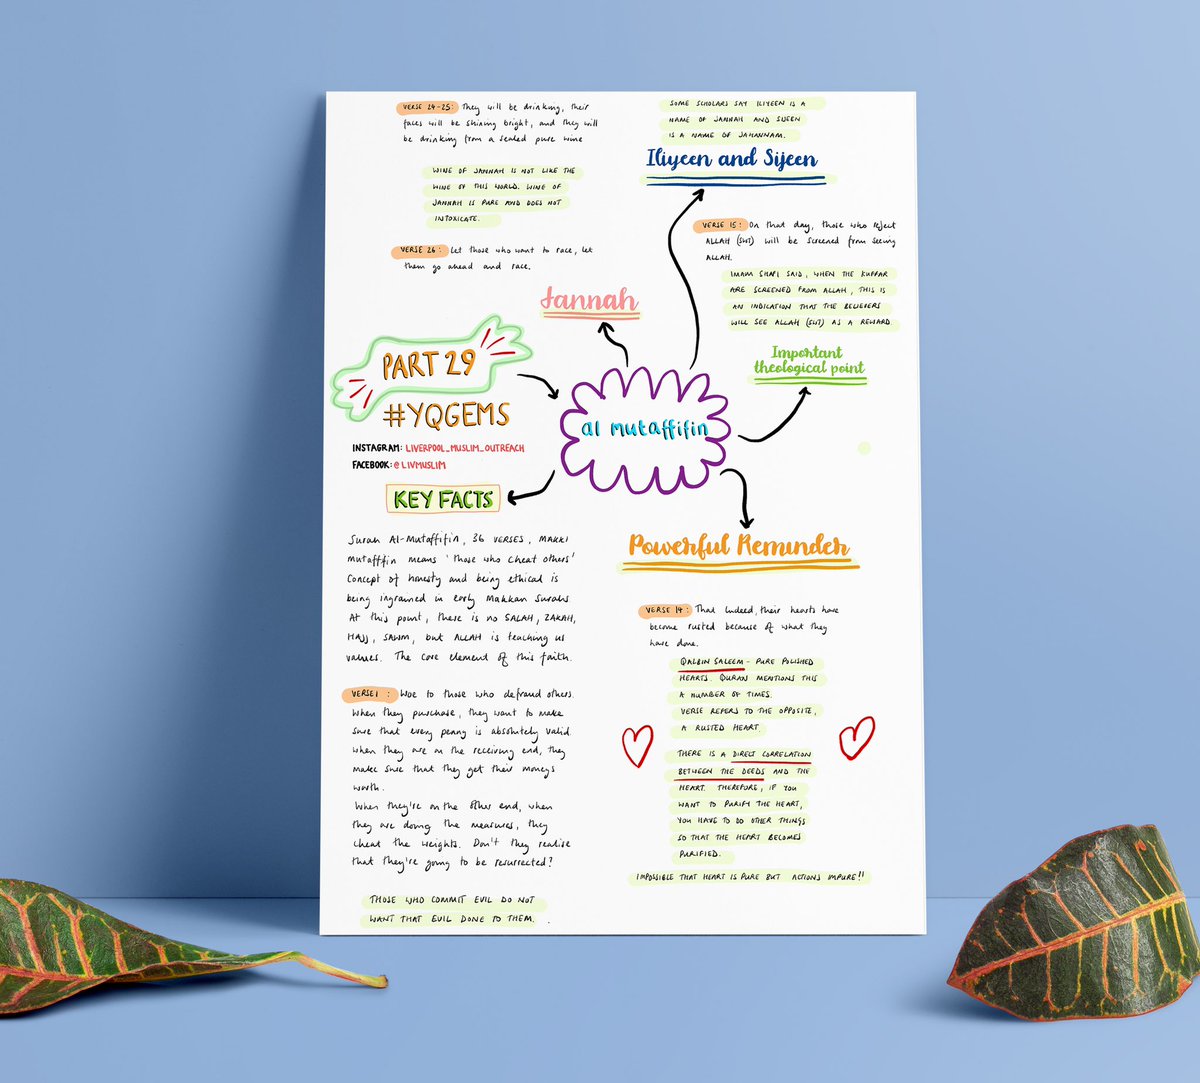 VERSE 24-25: They will be drinking, their
faces will be shining bright, and they will
be drinking from a sealed pure wine
WINE OF JANNAH IS NOT LIKE THE
WINE OF THIS WORLD. WINE OF
JANNAH IS PURE AND DOES NOT
INTOXICATE.
VERSE 26: Let those who want to race, let
them go ahead and race.
Jannah
SOME SCHOLARS SAY ILIYEEN IS A
NAME OF JANNAH AND SIJEEN
IS A NAME OF JAHANNAM.
Iliyeen and Sijeen
VERSE 15: On that day, those who reject
ALLAH (SWT) will be screened from seeing
ALLAH.
IMAM SHAFI SAID, WHEN THE KUFFAR
ARE SCREENED FROM ALLAH, THIS IS
AN INDICATION THAT THE BELIEVERS
WILL SEE ALLAH (SWT) AS A REWARD.
Important
theological point
PART 29
#YQGEMS
INSTAGRAM: LIVERPOOL_MUSLIM_OUTREACH
FACEBOOK: @LIVMUSLIM
al mutaffifin
KEY FACTS
Surah Al-Mutaffifin, 36 VERSES, MAKKI
Mutaffifin means 'those who cheat others'
Concept of honesty and being ethical is
being ingrained in early Makkan Surahs.
At this point, there is no SALAH, ZAKAH,
HAJJ, SAWM, but ALLAH is teaching us
values. The core element of this faith.
VERSE 1: Woe to those who defraud others.
When they purchase, they want to make
sure that every penny is absolutely valid.
When they are on the receiving end, they
make sure that they get their moneys
worth.
When they're on the other end, when
they are doing the measures, they
cheat the weights. Don't they realise
that they're going to be resurrected?
THOSE WHO COMMIT EVIL DO NOT
WANT THAT EVIL DONE TO THEM.
Powerful Reminder
VERSE 14: That indeed, their hearts have
become rusted because of what they
have done.
QALBIN SALEEM - PURE POLISHED
HEARTS. QURAN MENTIONS THIS
A NUMBER OF TIMES.
VERSE REFERS TO THE OPPOSITE,
A RUSTED HEART.
THERE IS A DIRECT CORRELATION
BETWEEN THE DEEDS AND THE
HEART. THEREFORE, IF YOU
WANT TO PURIFY THE HEART,
YOU HAVE TO DO OTHER THINGS
SO THAT THE HEART BECOMES
PURIFIED.
IMPOSSIBLE THAT HEART IS PURE BUT ACTIONS IMPURE!!